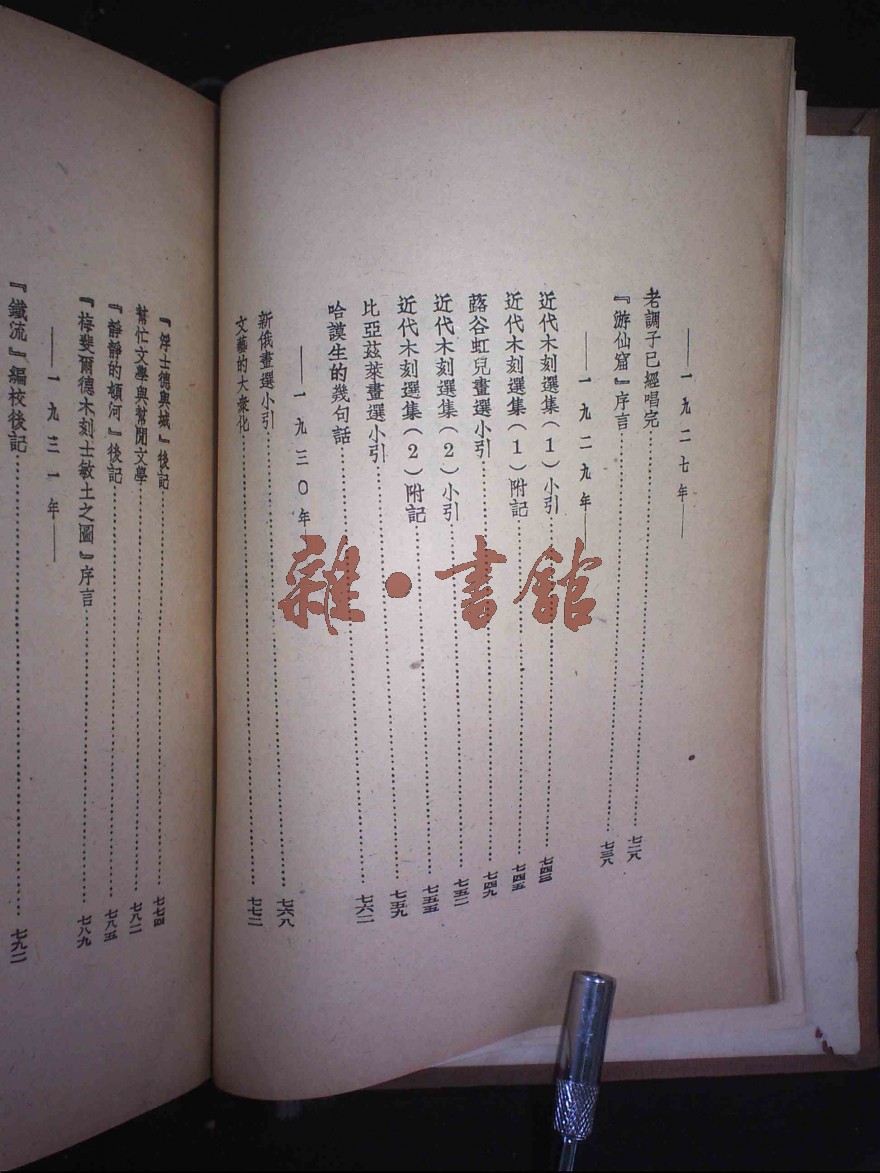 ——一九二七年——
老調子已經唱完……七二八
『游仙窟』序言……七三八
——一九二九年——
近代木刻選集（1）小引……七四三
近代木刻選集（1）附記……七四五
蕗谷虹兒畫選小引……七四九
近代木刻選集（2）小引……七五二
近代木刻選集（2）附記……七五五
比亞茲萊畫選小引……七五九
哈謨生的幾句話……七六二
——一九三〇年——
新俄畫選小引……七六八
文藝的大衆化……七七二
『浮士德與城』後記……七七四
幫忙文學與幫閒文學……七八二
『靜靜的頓河』後記……七八五
『梅斐爾德木刻士敏土之圖』序言……七八九
——一九三一年——
『鐵流』編校後記……七九二
雜·書館